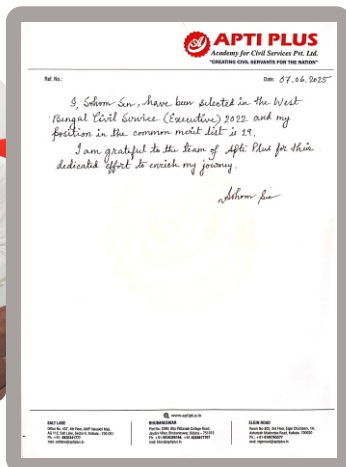 APTI PLUS
Academy for Civil Services Pvt. Ltd.
"CREATING CIVIL SERVANTS FOR THE NATION"
Ref. No.:
Date: 07.06.2025
I, Sohom Sen, have been selected in the West
Bengal Civil Service (Executive) 2022 and my
position in the common merit list is 19.
I am grateful to the team of Apti Plus for their
dedicated effort to enrich my journey.
Sohom Sen
www.aptiplus.in
SALT LAKE
BHUBANESWAR
ELGIN ROAD